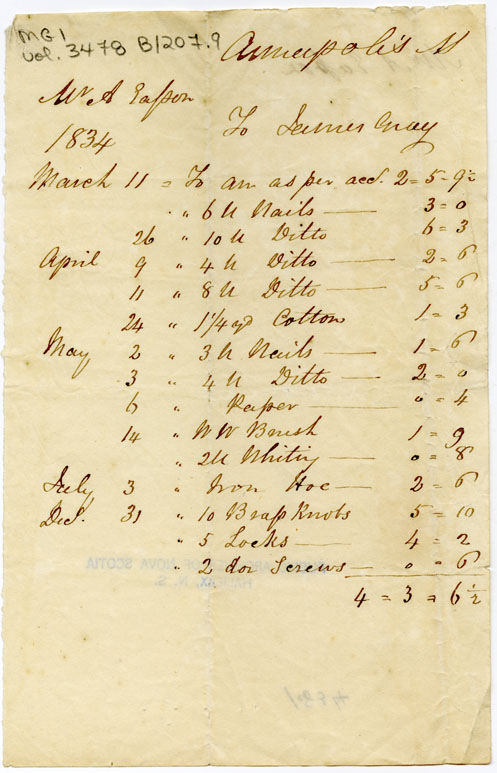 MG 1
Vol. 3478 B/207.9
Annapolis
Mr A Easson
To James Gray
1834
March 11 = To am as per acct. 2 = 5 = 9 1/2
" 6 lb Nails — 3 = 0
26 " 10 lb Ditto 6 = 3
April 9 " 4 lb Ditto — 2 = 6
11 " 8 lb Ditto — 5 = 6
24 " 1 1/4 yd Cotton 1 = 3
May 2 " 3 lb Nails — 1 = 6
3 " 4 lb Ditto — 2 = 0
6 " Paper — 0 = 4
14 " W W Brush 1 = 9
" 2 lb Whiting — 0 = 8
July 3 " Iron Hoe — 2 = 6
Dec. 31 " 10 Brass Knobs 5 = 10
" 5 Locks — 4 = 2
" 2 doz Screws — 0 = 6
4 = 3 = 6 1/2
ARCHIVES OF NOVA SCOTIA
HALIFAX, N. S.